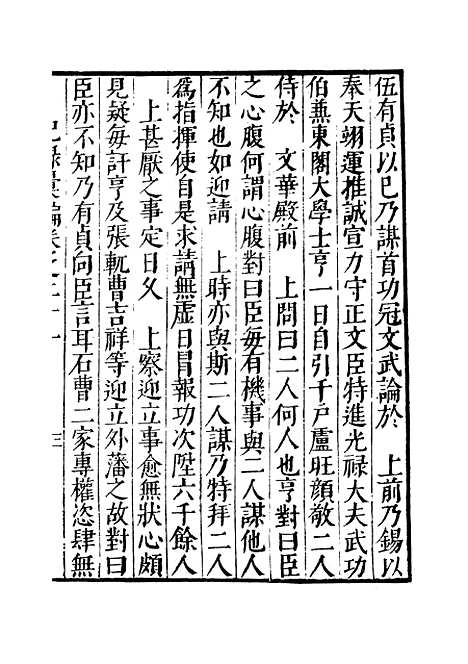 伍有貞以巳乃謀首功冠文武論於　上前乃錫以
奉天翊運推誠宣力守正文臣特進光禄大夫武功
伯兼東閣大學士亨一日自引千戶盧旺顔敬二人
侍於　文華殿前　上問曰二人何人也亨對曰臣
之心腹何謂心腹對曰臣毎有機事與二人謀他人
不知也如迎請　上時亦與斯二人謀乃特拜二人
爲指揮使自是求請無虚日冒報功次陞六千餘人
　上甚厭之事定日久　上察迎立事愈無狀心頗
見疑毎訐亨及張軏曹吉祥等迎立外藩之故對曰
臣亦不知乃有貞向臣言耳石曹二家專權恣肆無
卷之二十一
三